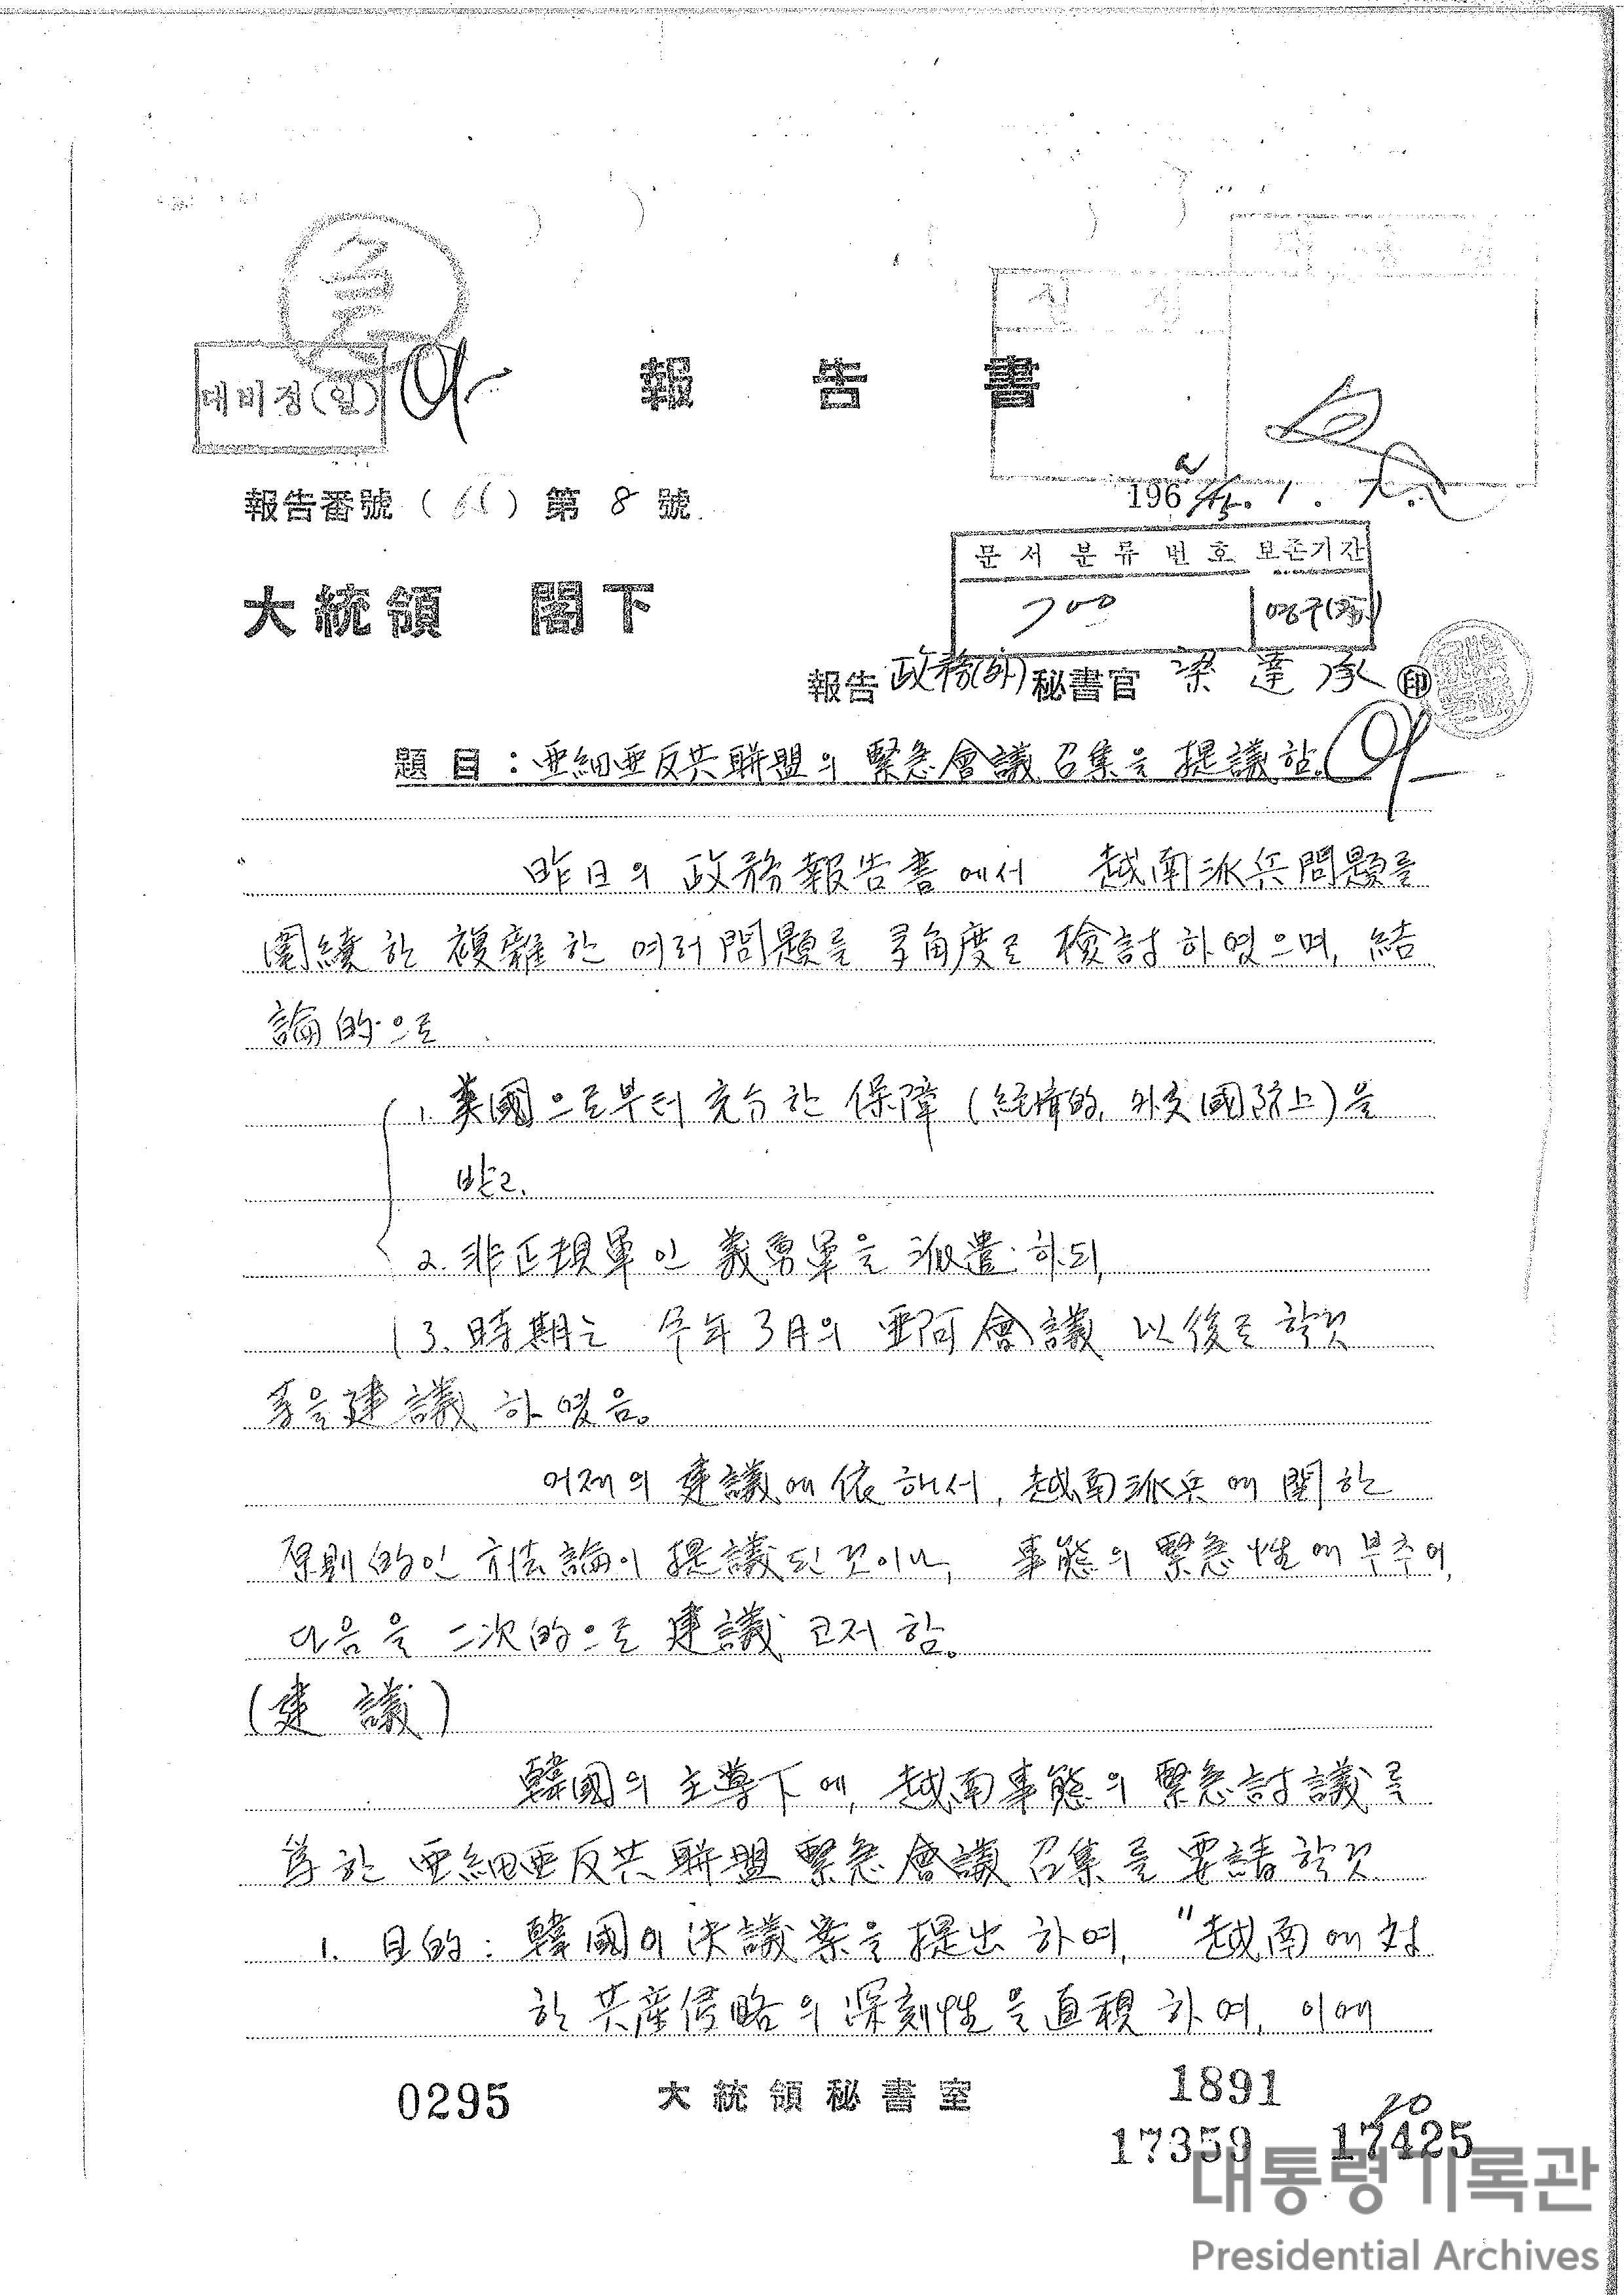 대비정(일)
報告書
報告番號 (65) 第 8 號
1965. 1. 7.
문서분류번호 보존기간
700 영구
大統領 閣下
報告 政務(外) 秘書官 梁達承 印
題目 : 亜細亜反共聯盟의 緊急會議召集을 提議함.
昨日의 政務報告書에서 越南派兵問題를
圍繞한 複雜한 여러問題를 多角度로 檢討하였으며, 結
論的으로
1. 美國으로부터 充分한 保障 (経済的, 外交國防上)을
받고,
2. 非正規軍인 義勇軍을 派遣하되,
3. 時期는 今年 3月의 亜阿會議 以後로 할것
等을 建議하였음.
어제의 建議에 依해서, 越南派兵에 関한
原則的인 方法論이 提議된것이나, 事態의 緊急性에 부추어,
다음을 二次的으로 建議코저 함.
(建 議)
韓國의 主導下에, 越南事態의 緊急討議를
爲한 亜細亜反共聯盟 緊急會議召集을 要請할것.
1. 目的 : 韓國이 決議案을 提出하여, "越南에 対
한 共産侵略의 深刻性을 直視하여, 이에
0295 大統領秘書室 1891
20
17359 17425
대통령기록관
Presidential Archives